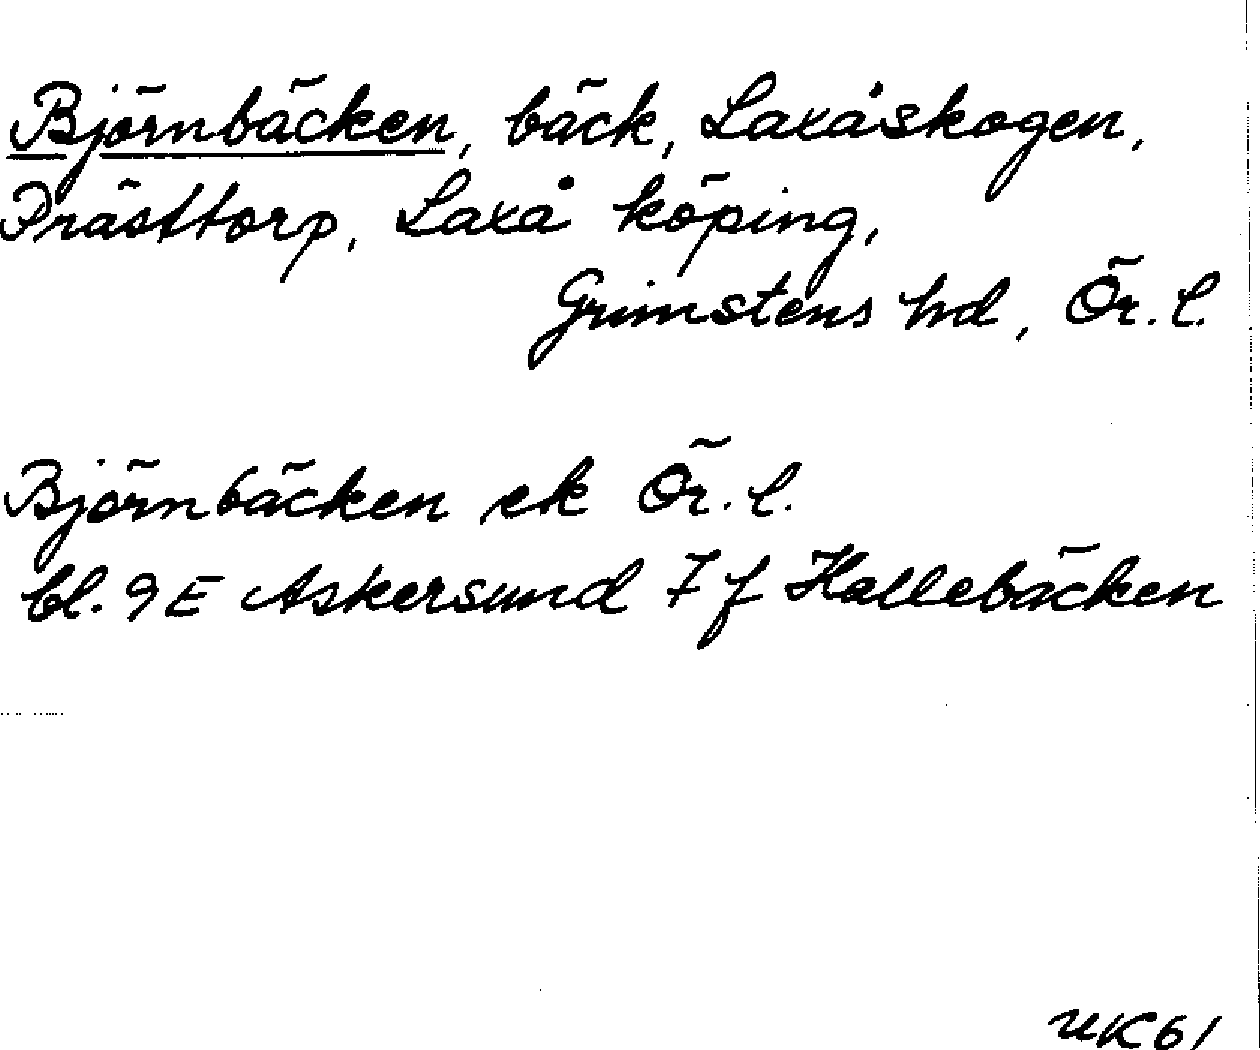 Björnbäcken, bäck, Laxåskogen,
Prästtorp, Laxå köping,
Grimstens hd, Ör. l.
Björnbäcken ek Ör. l.
bl. 9E Askersund 7f Hallebäcken
UK61